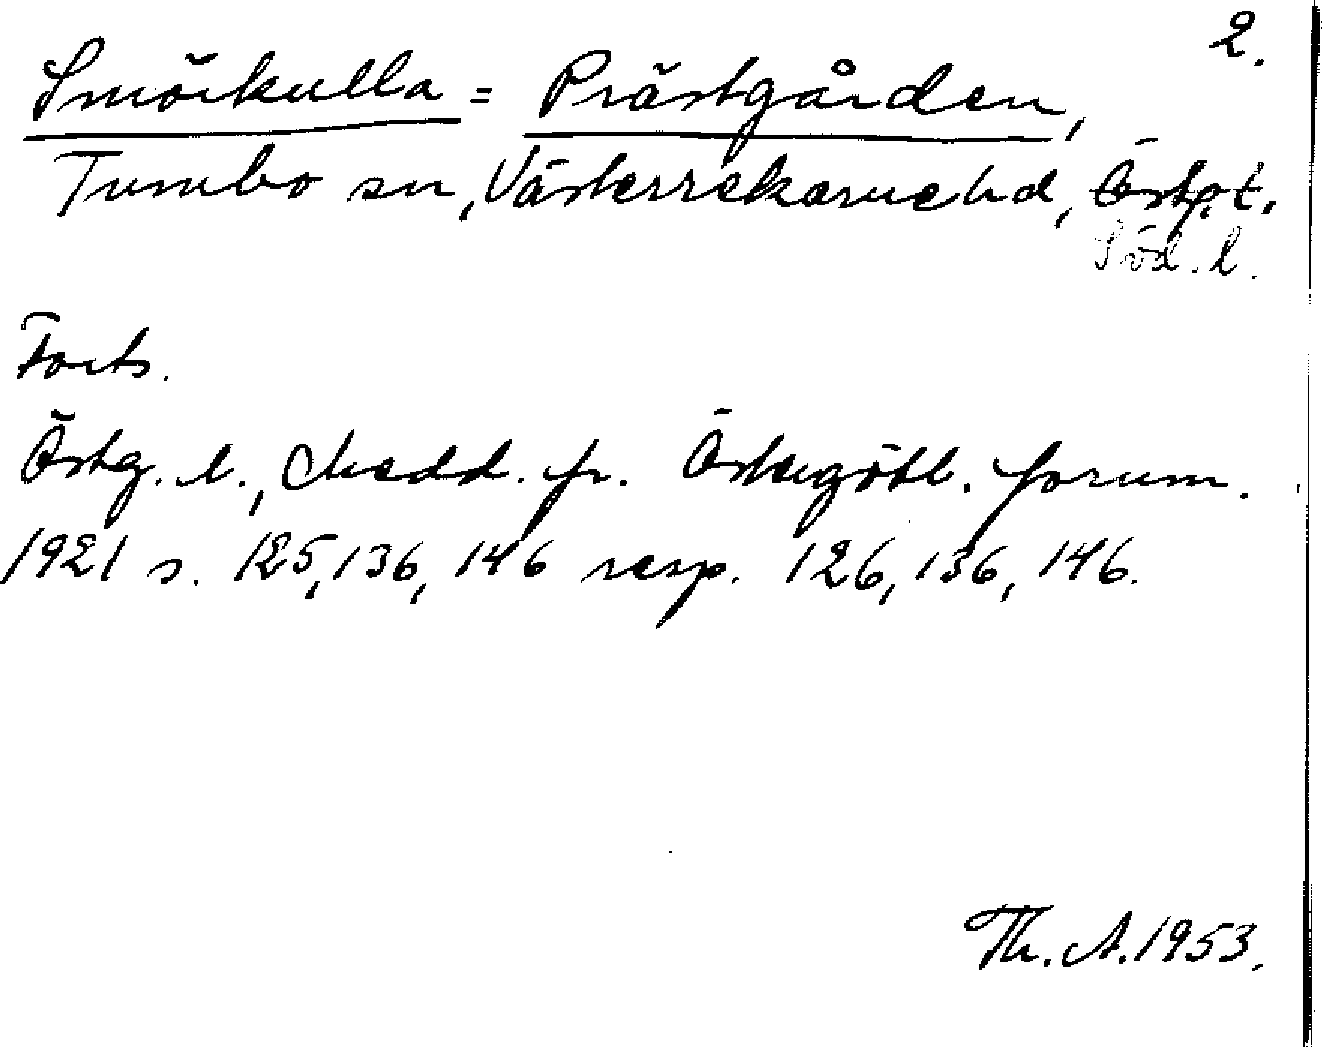 2.
Smörkulla = Prästgården,
Tumbo sn, Västerrekarne hd, Östg.l.
Söd. l.
Forts.
Östg. l., Medd. fr. Östergötl. fornm.
1921 s. 125, 136, 146 resp. 126, 136, 146.
Th. A. 1953.